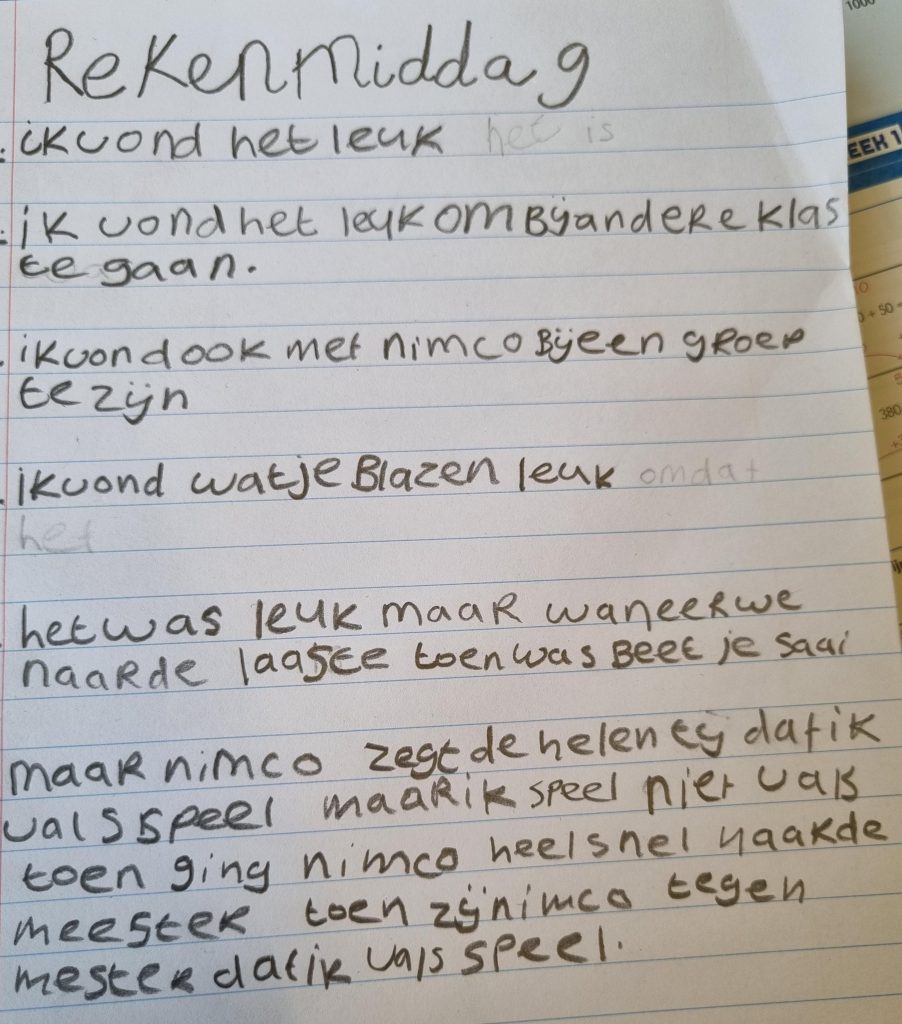 Rekenmiddag
ik vond het leuk het is
ik vond het leuk om Bij andere klas
te gaan.
ik vond ook met nimco Bij een groep
te zijn
ik vond watje Blazen leuk omdat
het
het was leuk maar waneer we
naar de laaste toen was Beetje saai
maar nimco zegt de helen tij dat ik
vals speel maar ik speel niet vals
toen ging nimco heel snel naar de
meester toen zij nimco tegen
mester dat ik vals speel.
1000
EEK 1
0 + 50 =
380